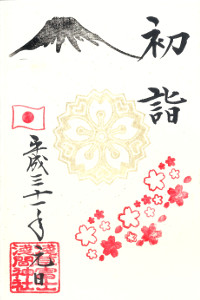 初詣
平成三十一年 元日
淺間神社